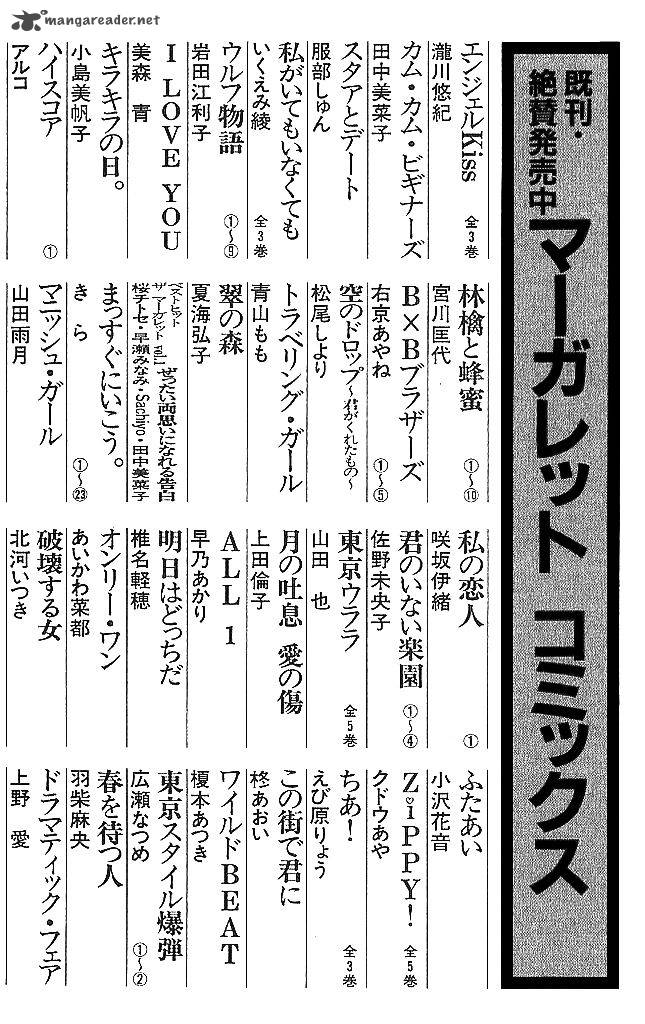 mangareader.net
既刊・絶賛発売中
マーガレット コミックス
エンジェルKiss 全3巻
瀧川悠紀
カム・カム・ビギナーズ
田中美菜子
スタアとデート
服部しゅん
私がいてもいなくても 全3巻
いくえみ綾
ウルフ物語 ①〜⑤
岩田江利子
I LOVE YOU
美森 青
キラキラの日。
小島美帆子
ハイスコア ①
アルコ
林檎と蜂蜜 ①〜⑩
宮川匡代
B×Bブラザーズ ①〜⑤
右京あやね
空のドロップ〜君がくれたもの〜
松尾しより
トラベリング・ガール
青山もも
翠の森
夏海弘子
ベストヒット ザ マーガレット vol.1 ぜったい両思いになれる告白
桜チトセ・早瀬みなみ・Sachiyo・田中美菜子
まっすぐにいこう。 ①〜㉓
きら
マニッシュ・ガール
山田雨月
私の恋人 ①
咲坂伊緒
君のいない楽園 ①〜④
佐野未央子
東京ウララ 全5巻
山田 也
月の吐息 愛の傷
上田倫子
ALL 1
早乃あかり
明日はどっちだ
椎名軽穂
オンリー・ワン
あいかわ菜都
破壊する女
北河いつき
ふたあい
小沢花音
ZiPPY! 全5巻
クドウあや
ちあ! 全3巻
えび原りょう
この街で君に
柊あおい
ワイルドBEAT
榎本あつき
東京スタイル爆弾 ①〜②
広瀬なつめ
春を待つ人
羽柴麻央
ドラマティック・フェア
上野 愛